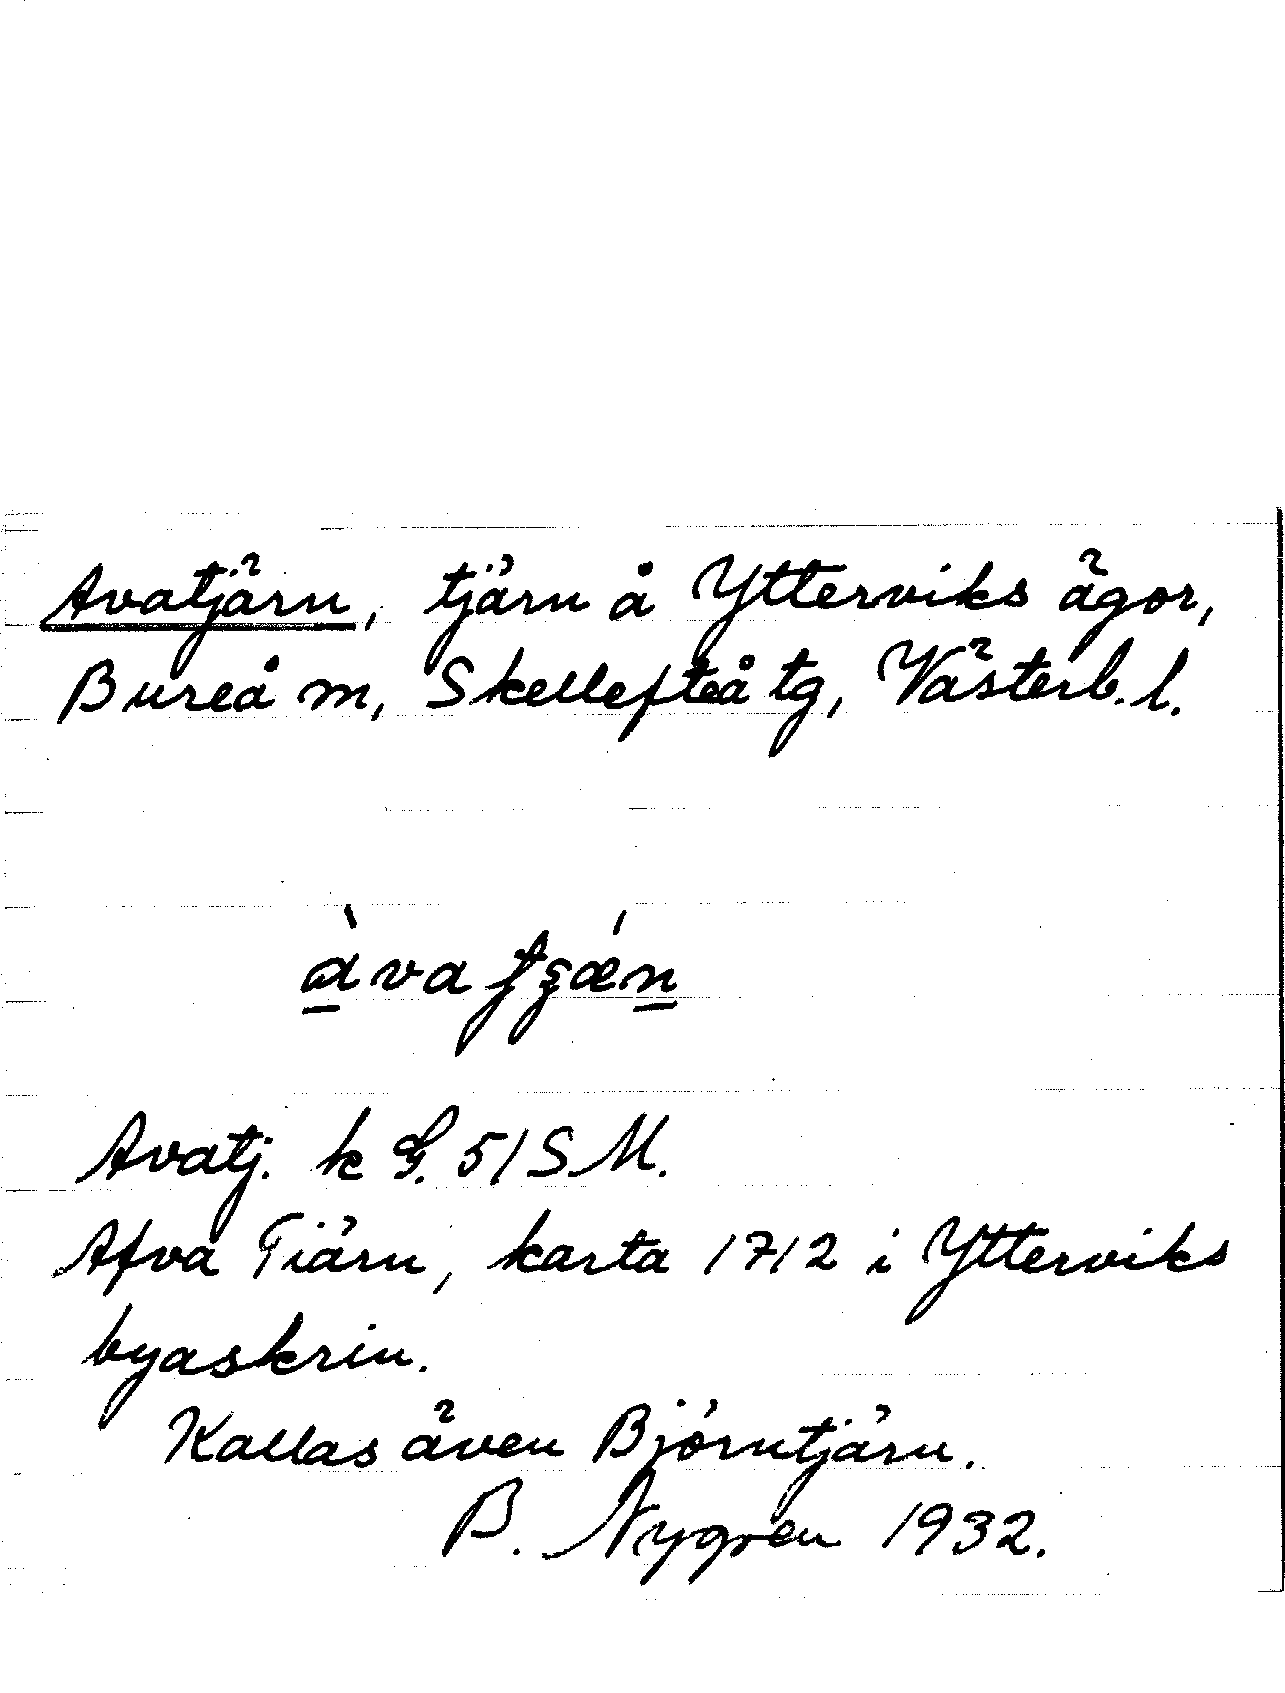 Avatjärn, tjärn å Ytterviks ägor,
Bureå m, Skellefteå tg, Västerb. l.
Avatj. k G. 51 S M.
Afva Tiärn, karta 1712 i Ytterviks
byaskrin.
Kallas även Björntjärn.
B. Nygren 1932.